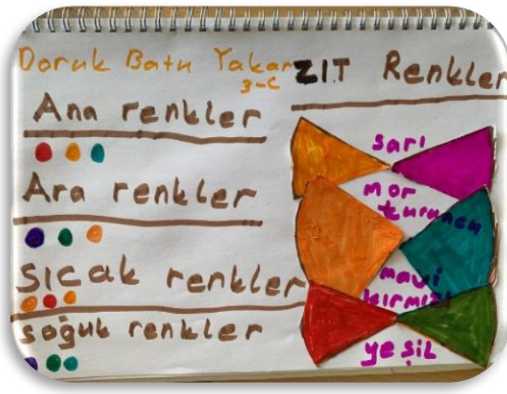 Doruk Batu Yakar
3-C
Ana renkler
Ara renkler
sıcak renkler
soğuk renkler
ZIT Renkler
sarı
mor
turuncu
mavi
kırmızı
yeşiL